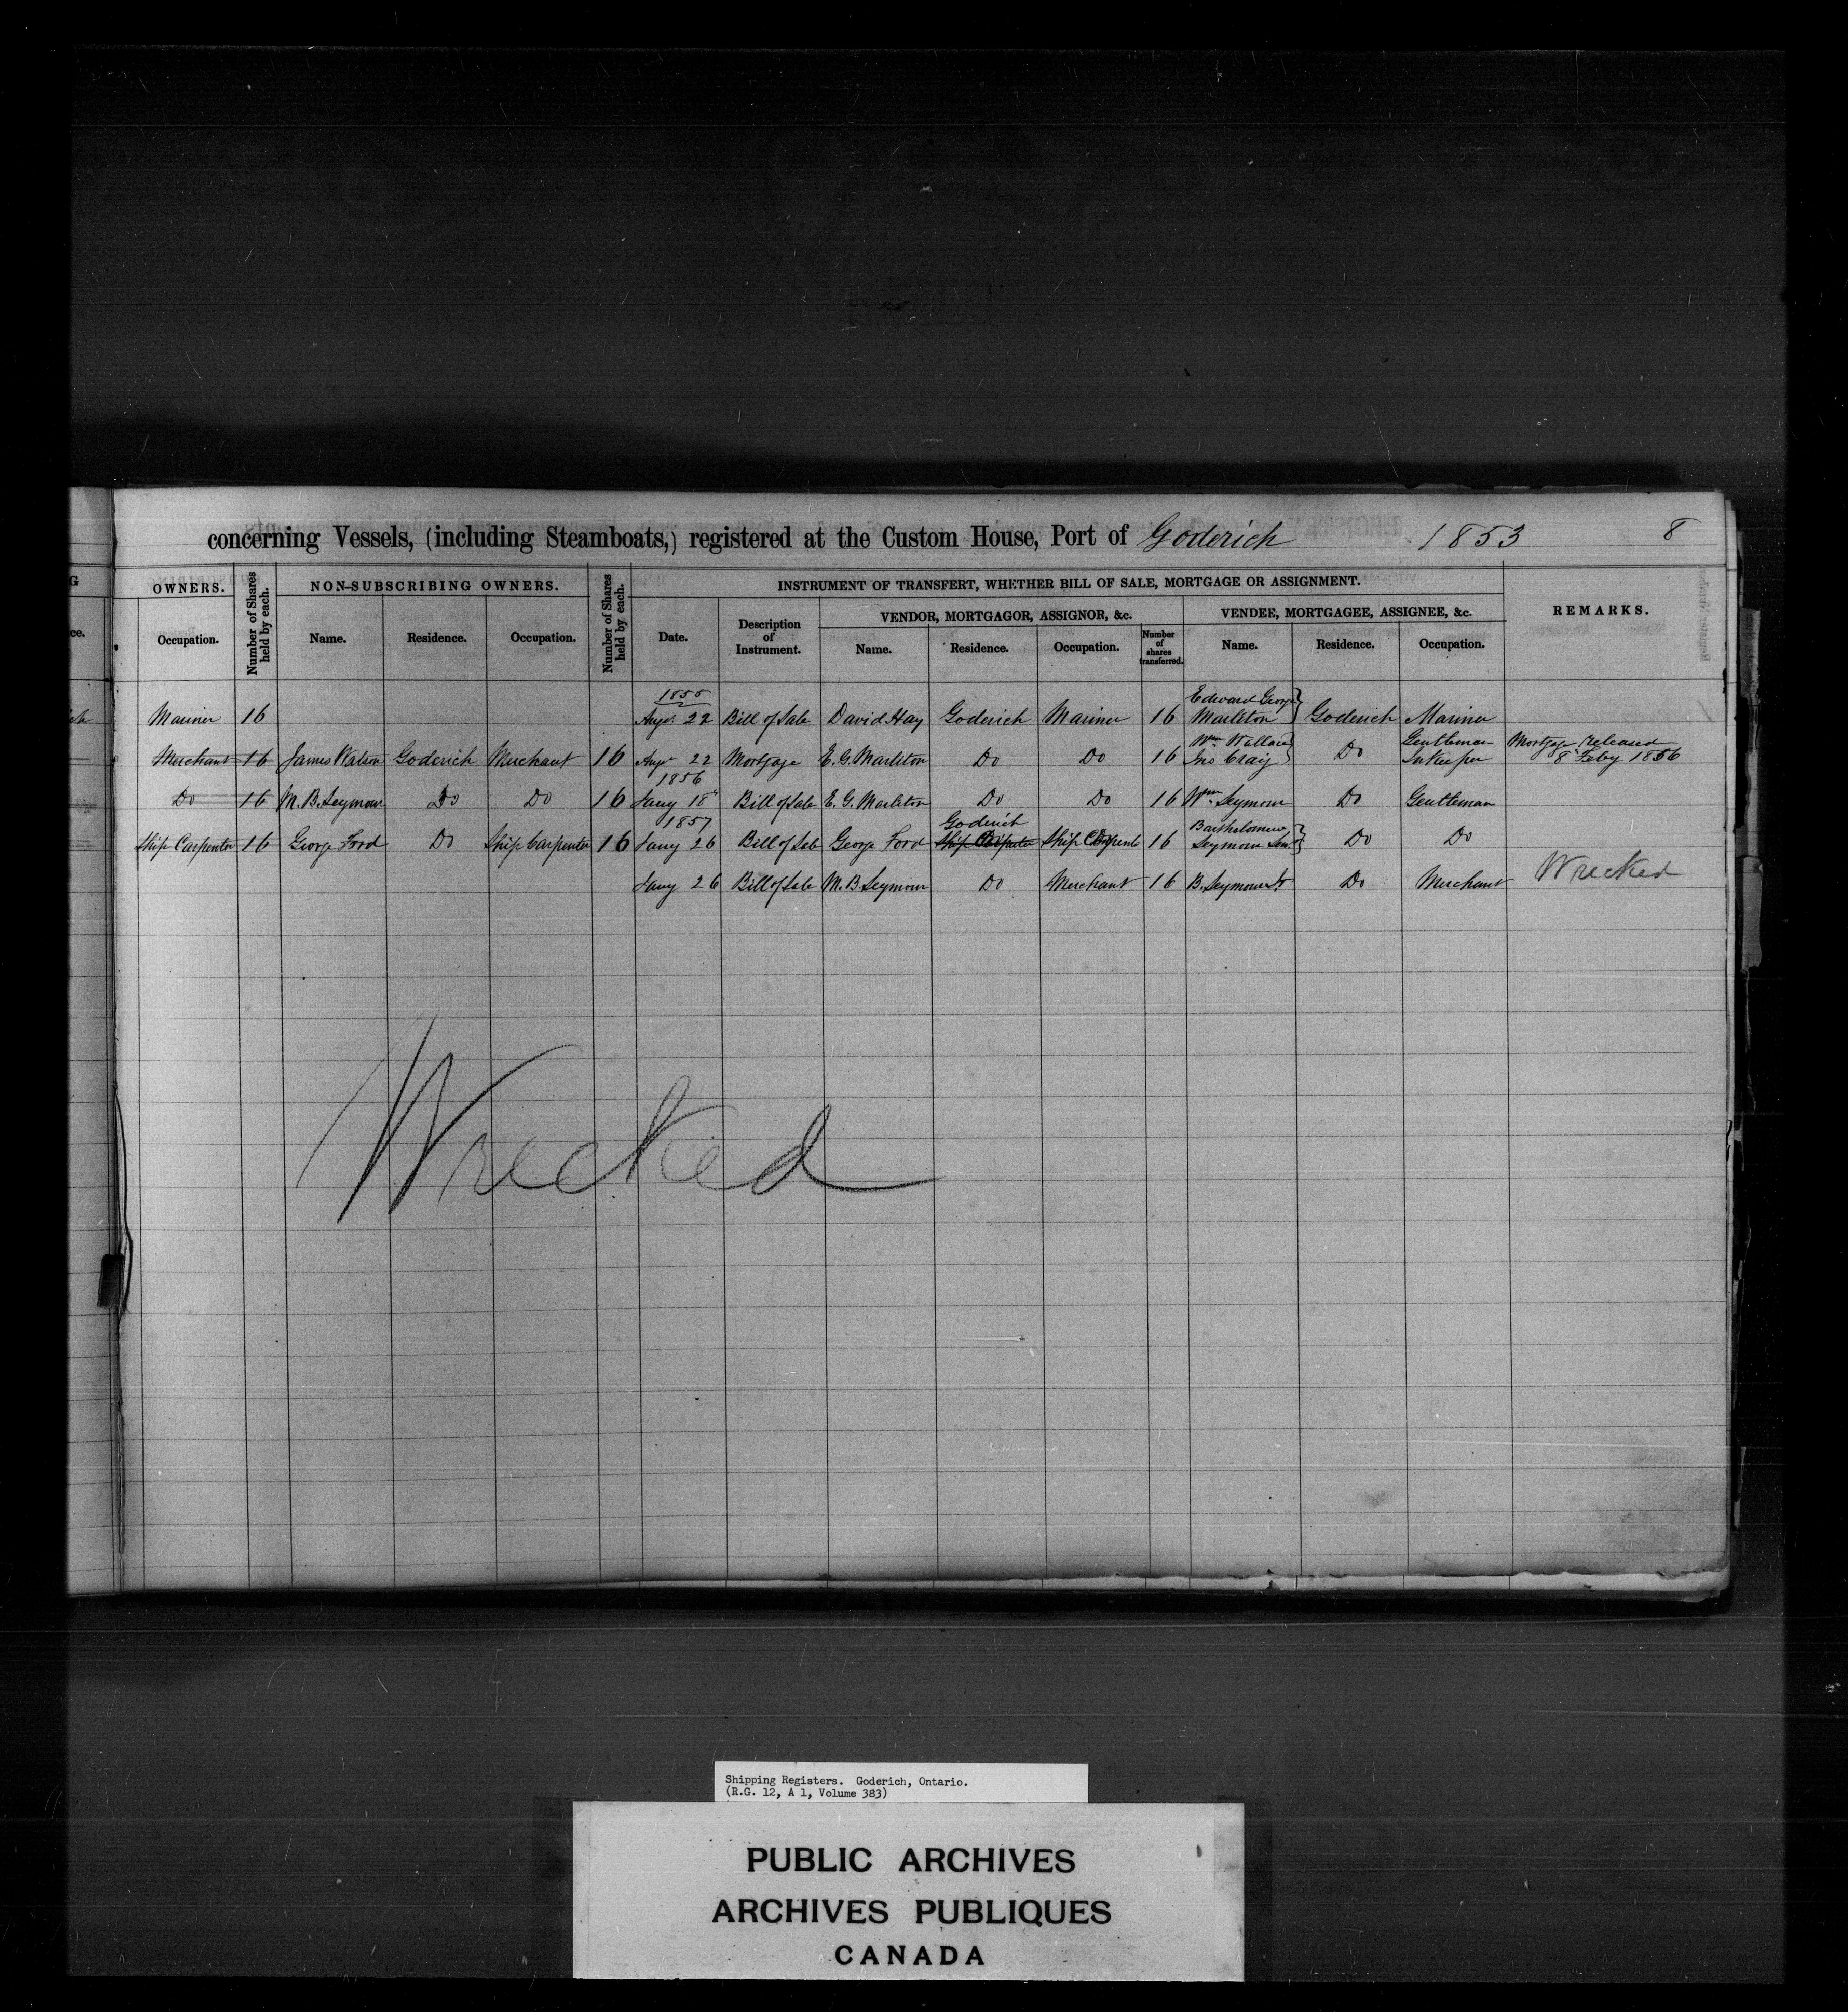 concerning Vessels, (including Steamboats,) registered at the Custom House, Port of Goderich 1853 8
OWNERS. Number of Shares held by each. NON-SUBSCRIBING OWNERS. Number of Shares held by each. INSTRUMENT OF TRANSFERT, WHETHER BILL OF SALE, MORTGAGE OR ASSIGNMENT. REMARKS.
VENDOR, MORTGAGOR, ASSIGNOR, &c. VENDEE, MORTGAGEE, ASSIGNEE, &c.
Occupation. Name. Residence. Occupation. Date. Description of Instrument. Name. Residence. Occupation. Number of shares transferred. Name. Residence. Occupation.
1855 Edward George
Mariner 16 Augt 22 Bill of Sale David Hay Goderich Mariner 16 Marlton Goderich Mariner
Wm Wallace Gentleman Mortgage released
Merchant 16 James Watson Goderich Merchant 16 Augt 22 Mortgage E. G. Marlton Do Do 16 Jno Craig Do Inkeeper 8th Feby 1856
1856
Do 16 M. B. Seymour Do Do 16 Jany 18th Bill of Sale E. G. Marlton Do Do 16 Wm Seymour Do Gentleman
1857 Goderich Bartholomew
Ship Carpenter 16 George Ford Do Ship Carpenter 16 Jany 26 Bill of Sale George Ford Ship Carpenter Ship Carpent 16 Seymour Senr Do Do
Jany 26 Bill of Sale M. B. Seymour Do Merchant 16 B. Seymour Do Merchant Wrecked
Wrecked
Shipping Registers. Goderich, Ontario.
(R.G. 12, A 1, Volume 383)
PUBLIC ARCHIVES
ARCHIVES PUBLIQUES
CANADA